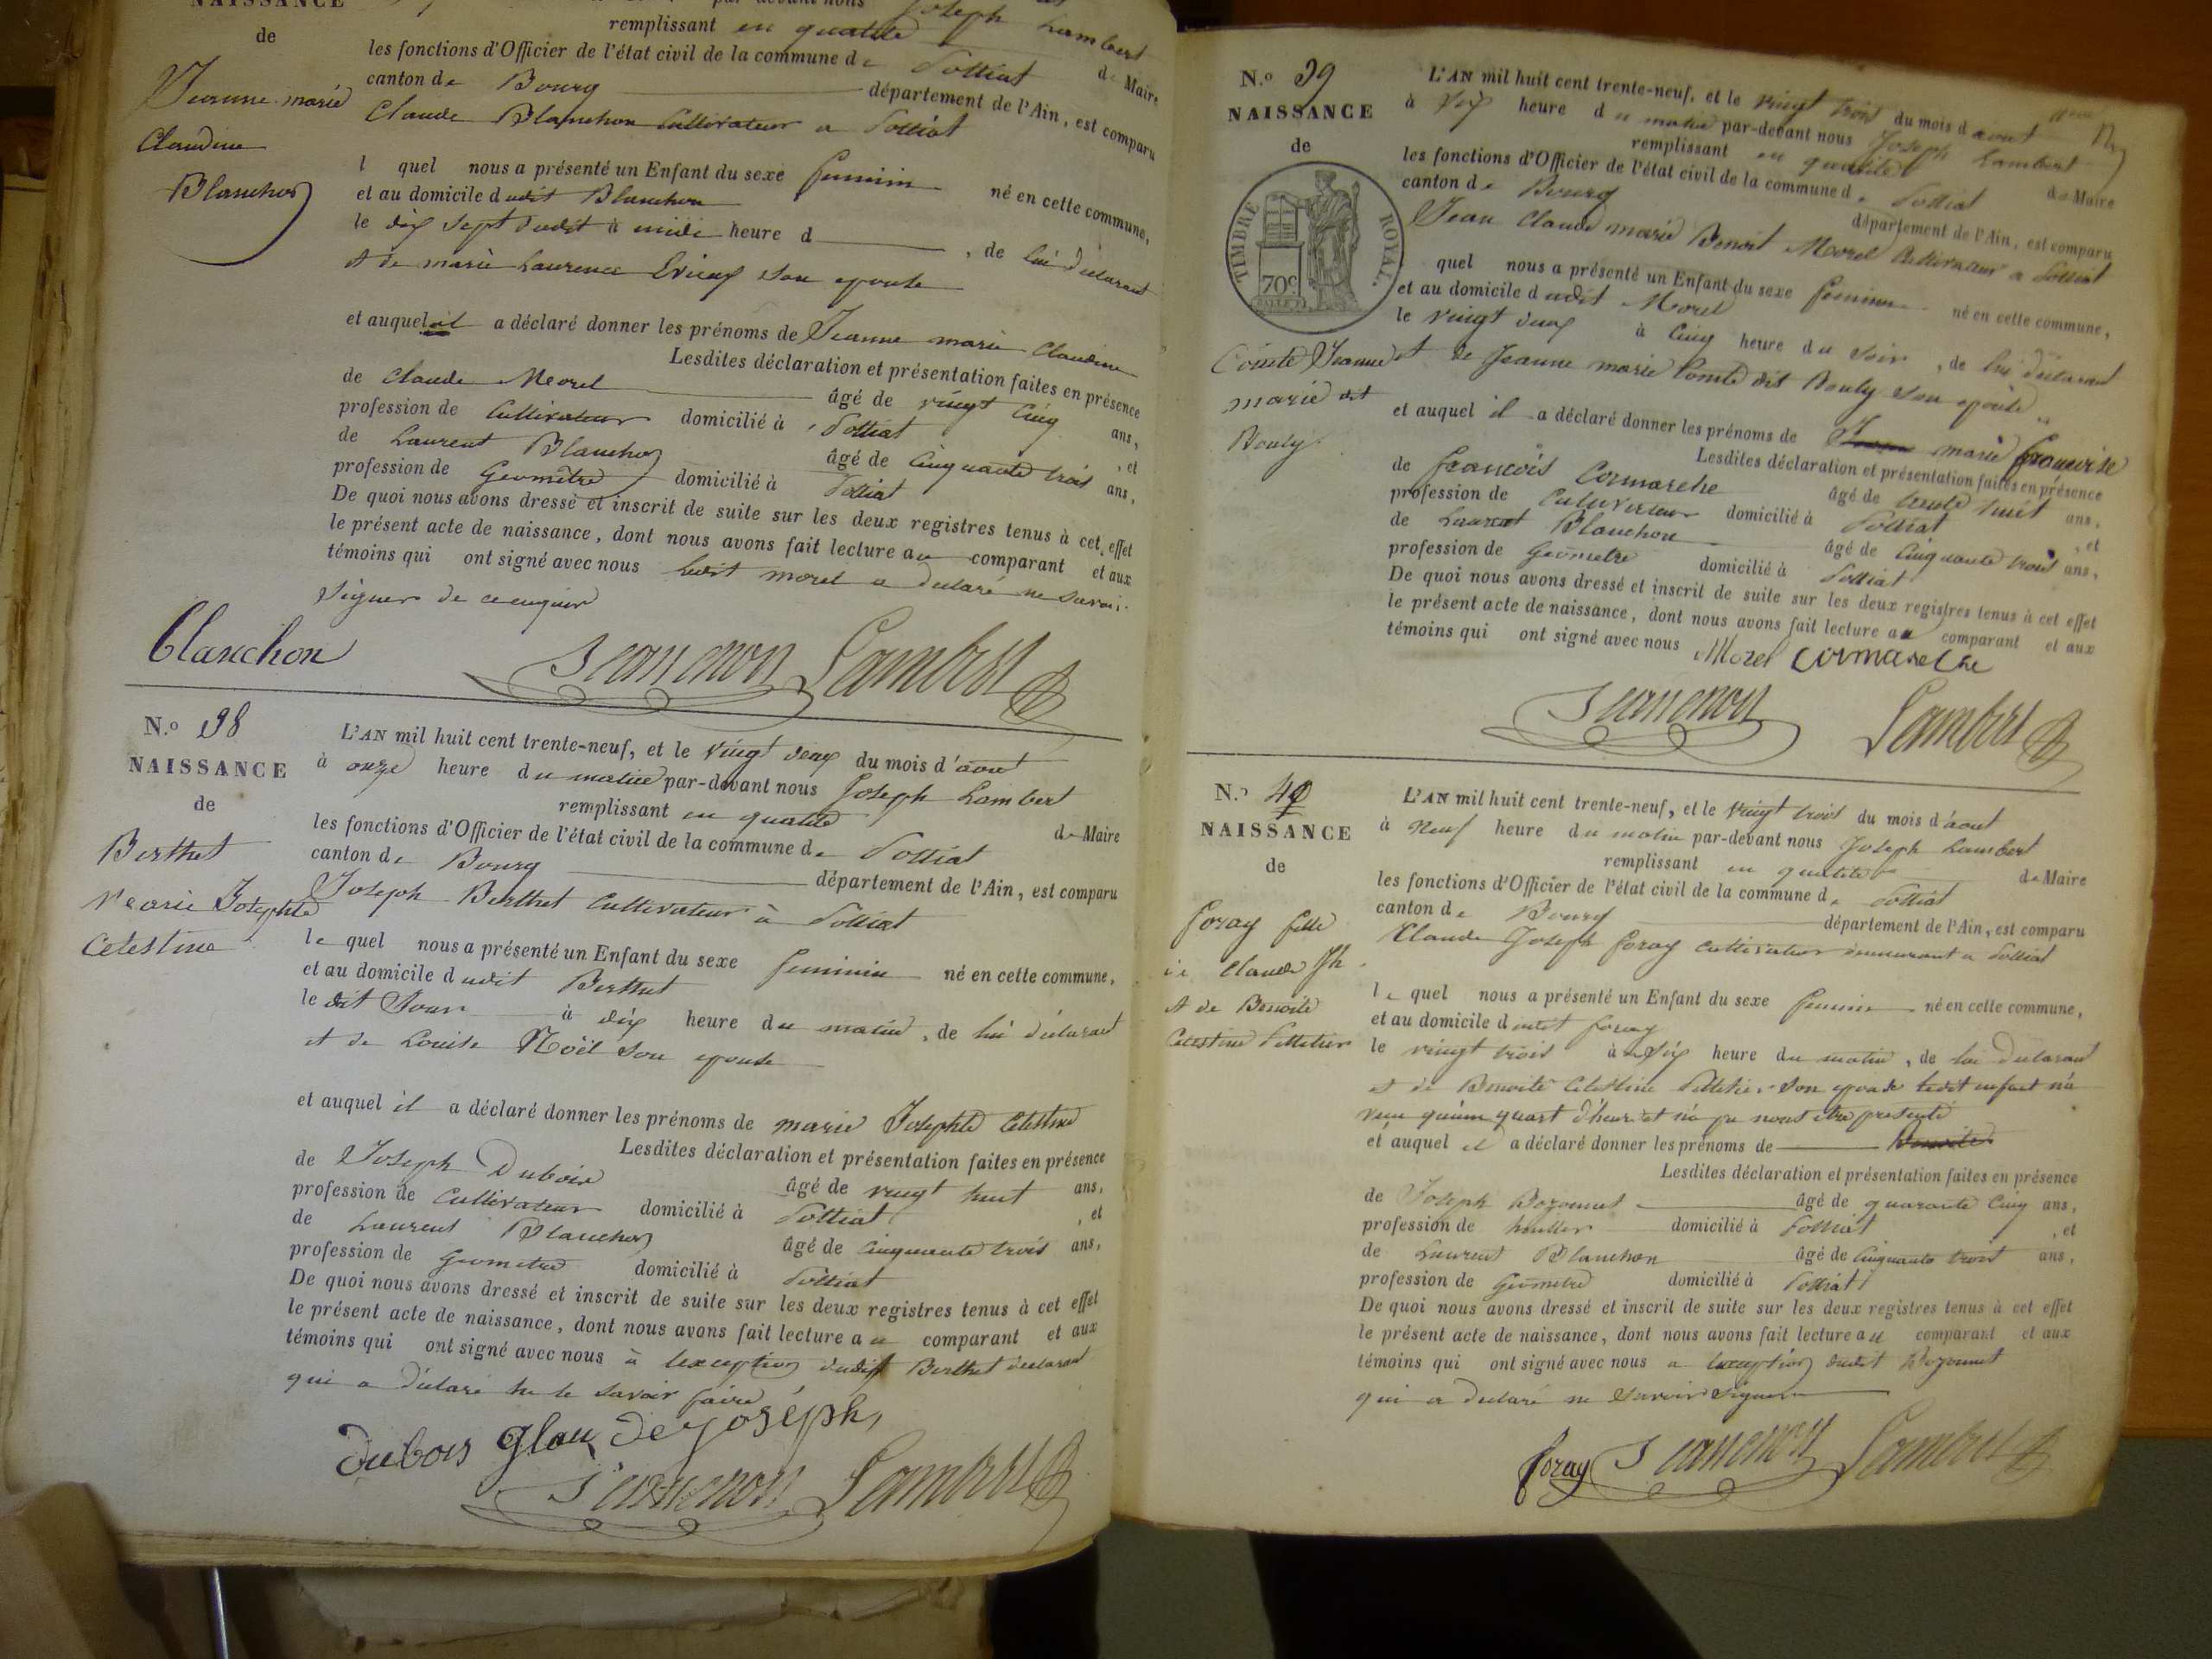 NAISSANCE
de
Jeanne marie
Claudine
Blanchon
par devant nous Joseph Lambert
remplissant en qualité de Maire
les fonctions d'Officier de l'état civil de la commune de Polliat
canton de Bourg département de l'Ain, est comparu
Claude Blanchon Cultivateur a Polliat
l quel nous a présenté un Enfant du sexe feminin né en cette commune,
et au domicile dudit Blanchon
le dix sept dudit à midi heure d , de lui déclarant
et de marie Laurence son epouse
et auquel il a déclaré donner les prénoms de Jeanne marie Claudine
Lesdites déclaration et présentation faites en présence
de Claude Morel âgé de vingt Cinq ans,
profession de Cultivateur domicilié à Polliat , et
de Laurent Blanchon âgé de Cinquante trois ans,
profession de Geometre domicilié à Polliat
De quoi nous avons dressé et inscrit de suite sur les deux registres tenus à cet effet
le présent acte de naissance, dont nous avons fait lecture au comparant et aux
témoins qui ont signé avec nous ledit morel a declaré ne savoir
signer de ce enquis
Blanchon
Lambert
N.o 38
NAISSANCE
de
Berthet
Marie Josephte
Celestine
L'AN mil huit cent trente-neuf, et le vingt deux du mois d'aout
à onze heure du matin par-devant nous Joseph Lambert
remplissant en qualité de Maire
les fonctions d'Officier de l'état civil de la commune de Polliat
canton de Bourg département de l'Ain, est comparu
Joseph Berthet Cultivateur à Polliat
le quel nous a présenté un Enfant du sexe feminin né en cette commune,
et au domicile dudit Berthet
le dit Jour à dix heure du matin, de lui déclarant
et de Louise Noël son epouse
et auquel il a déclaré donner les prénoms de marie Josephte Celestine
Lesdites déclaration et présentation faites en présence
de Joseph Dubois âgé de vingt huit ans,
profession de Cultivateur domicilié à Polliat , et
de Laurent Blanchon âgé de Cinquante trois ans,
profession de Geometre domicilié à Polliat
De quoi nous avons dressé et inscrit de suite sur les deux registres tenus à cet effet
le présent acte de naissance, dont nous avons fait lecture au comparant et aux
témoins qui ont signé avec nous à lexception dudit Berthet declarant
qui a déclaré ne le savoir faire
dubois de joséph,
Lambert
N.o 39
NAISSANCE
de
TIMBRE ROYAL.
70c
Comte Jeanne
marie dit
Bouly
L'AN mil huit cent trente-neuf, et le vingt trois du mois d aout
à Six heure du matin par-devant nous Joseph Lambert
remplissant en qualité de Maire
les fonctions d'Officier de l'état civil de la commune de Polliat
canton de Bourg département de l'Ain, est comparu
Jean Claude marie Benoit Morel Cultivateur a Polliat
quel nous a présenté un Enfant du sexe feminin né en cette commune,
et au domicile dudit Morel
le vingt deux à Cinq heure du soir , de lui déclarant
et de Jeanne marie Comte dit Bouly son epouse
et auquel il a déclaré donner les prénoms de marie françoise
Lesdites déclaration et présentation faites en présence
de françois Cormareche âgé de trente huit ans,
profession de Cultivateur domicilié à Polliat , et
de Laurent Blanchon âgé de Cinquante trois ans,
profession de Geometre domicilié à Polliat
De quoi nous avons dressé et inscrit de suite sur les deux registres tenus à cet effet
le présent acte de naissance, dont nous avons fait lecture au comparant et aux
témoins qui ont signé avec nous
Morel cormareche
Lambert
N.o 40
NAISSANCE
de
foray fille
de Claude Jh
et de Benoite
Celestine Pelletier
L'AN mil huit cent trente-neuf, et le vingt trois du mois d'aout
à Neuf heure du matin par-devant nous Joseph Lambert
remplissant en qualité de Maire
les fonctions d'Officier de l'état civil de la commune de Polliat
canton de Bourg département de l'Ain, est comparu
Claude Joseph foray cultivateur demeurant a Polliat
le quel nous a présenté un Enfant du sexe feminin né en cette commune,
et au domicile dudit foray
le vingt trois à Six heure du matin, de lui déclarant
et de Benoite Celestine Pelletier son epouse ledit enfant n'a
vecu qu'un quart d'heure et n'a pu nous etre presenté
et auquel il a déclaré donner les prénoms de
Lesdites déclaration et présentation faites en présence
de Joseph Bozonnet âgé de quarante Cinq ans,
profession de domicilié à Polliat , et
de Laurent Blanchon âgé de Cinquante trois ans,
profession de Geometre domicilié à Polliat
De quoi nous avons dressé et inscrit de suite sur les deux registres tenus à cet effet
le présent acte de naissance, dont nous avons fait lecture au comparant et aux
témoins qui ont signé avec nous a lexception dudit Bozonnet
qui a declaré ne savoir signer
foray Lambert